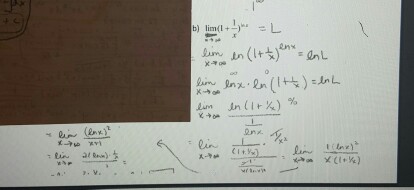 1^∞
b) lim x→∞ (1+1/x)^lnx = L
lim x→∞ ln (1+1/x)^lnx = lnL
lim x→∞ lnx · ln (1+1/x) = lnL
lim x→∞ ln (1+1/x) / (1/lnx) 0/0
= lim x→∞ 1/(1+1/x) · -1/x²
= lim x→∞ 1(lnx)² / x(1+1/x)
= lim x→∞ (lnx)² / x+1
= lim x→∞ 2(lnx) · 1/x =